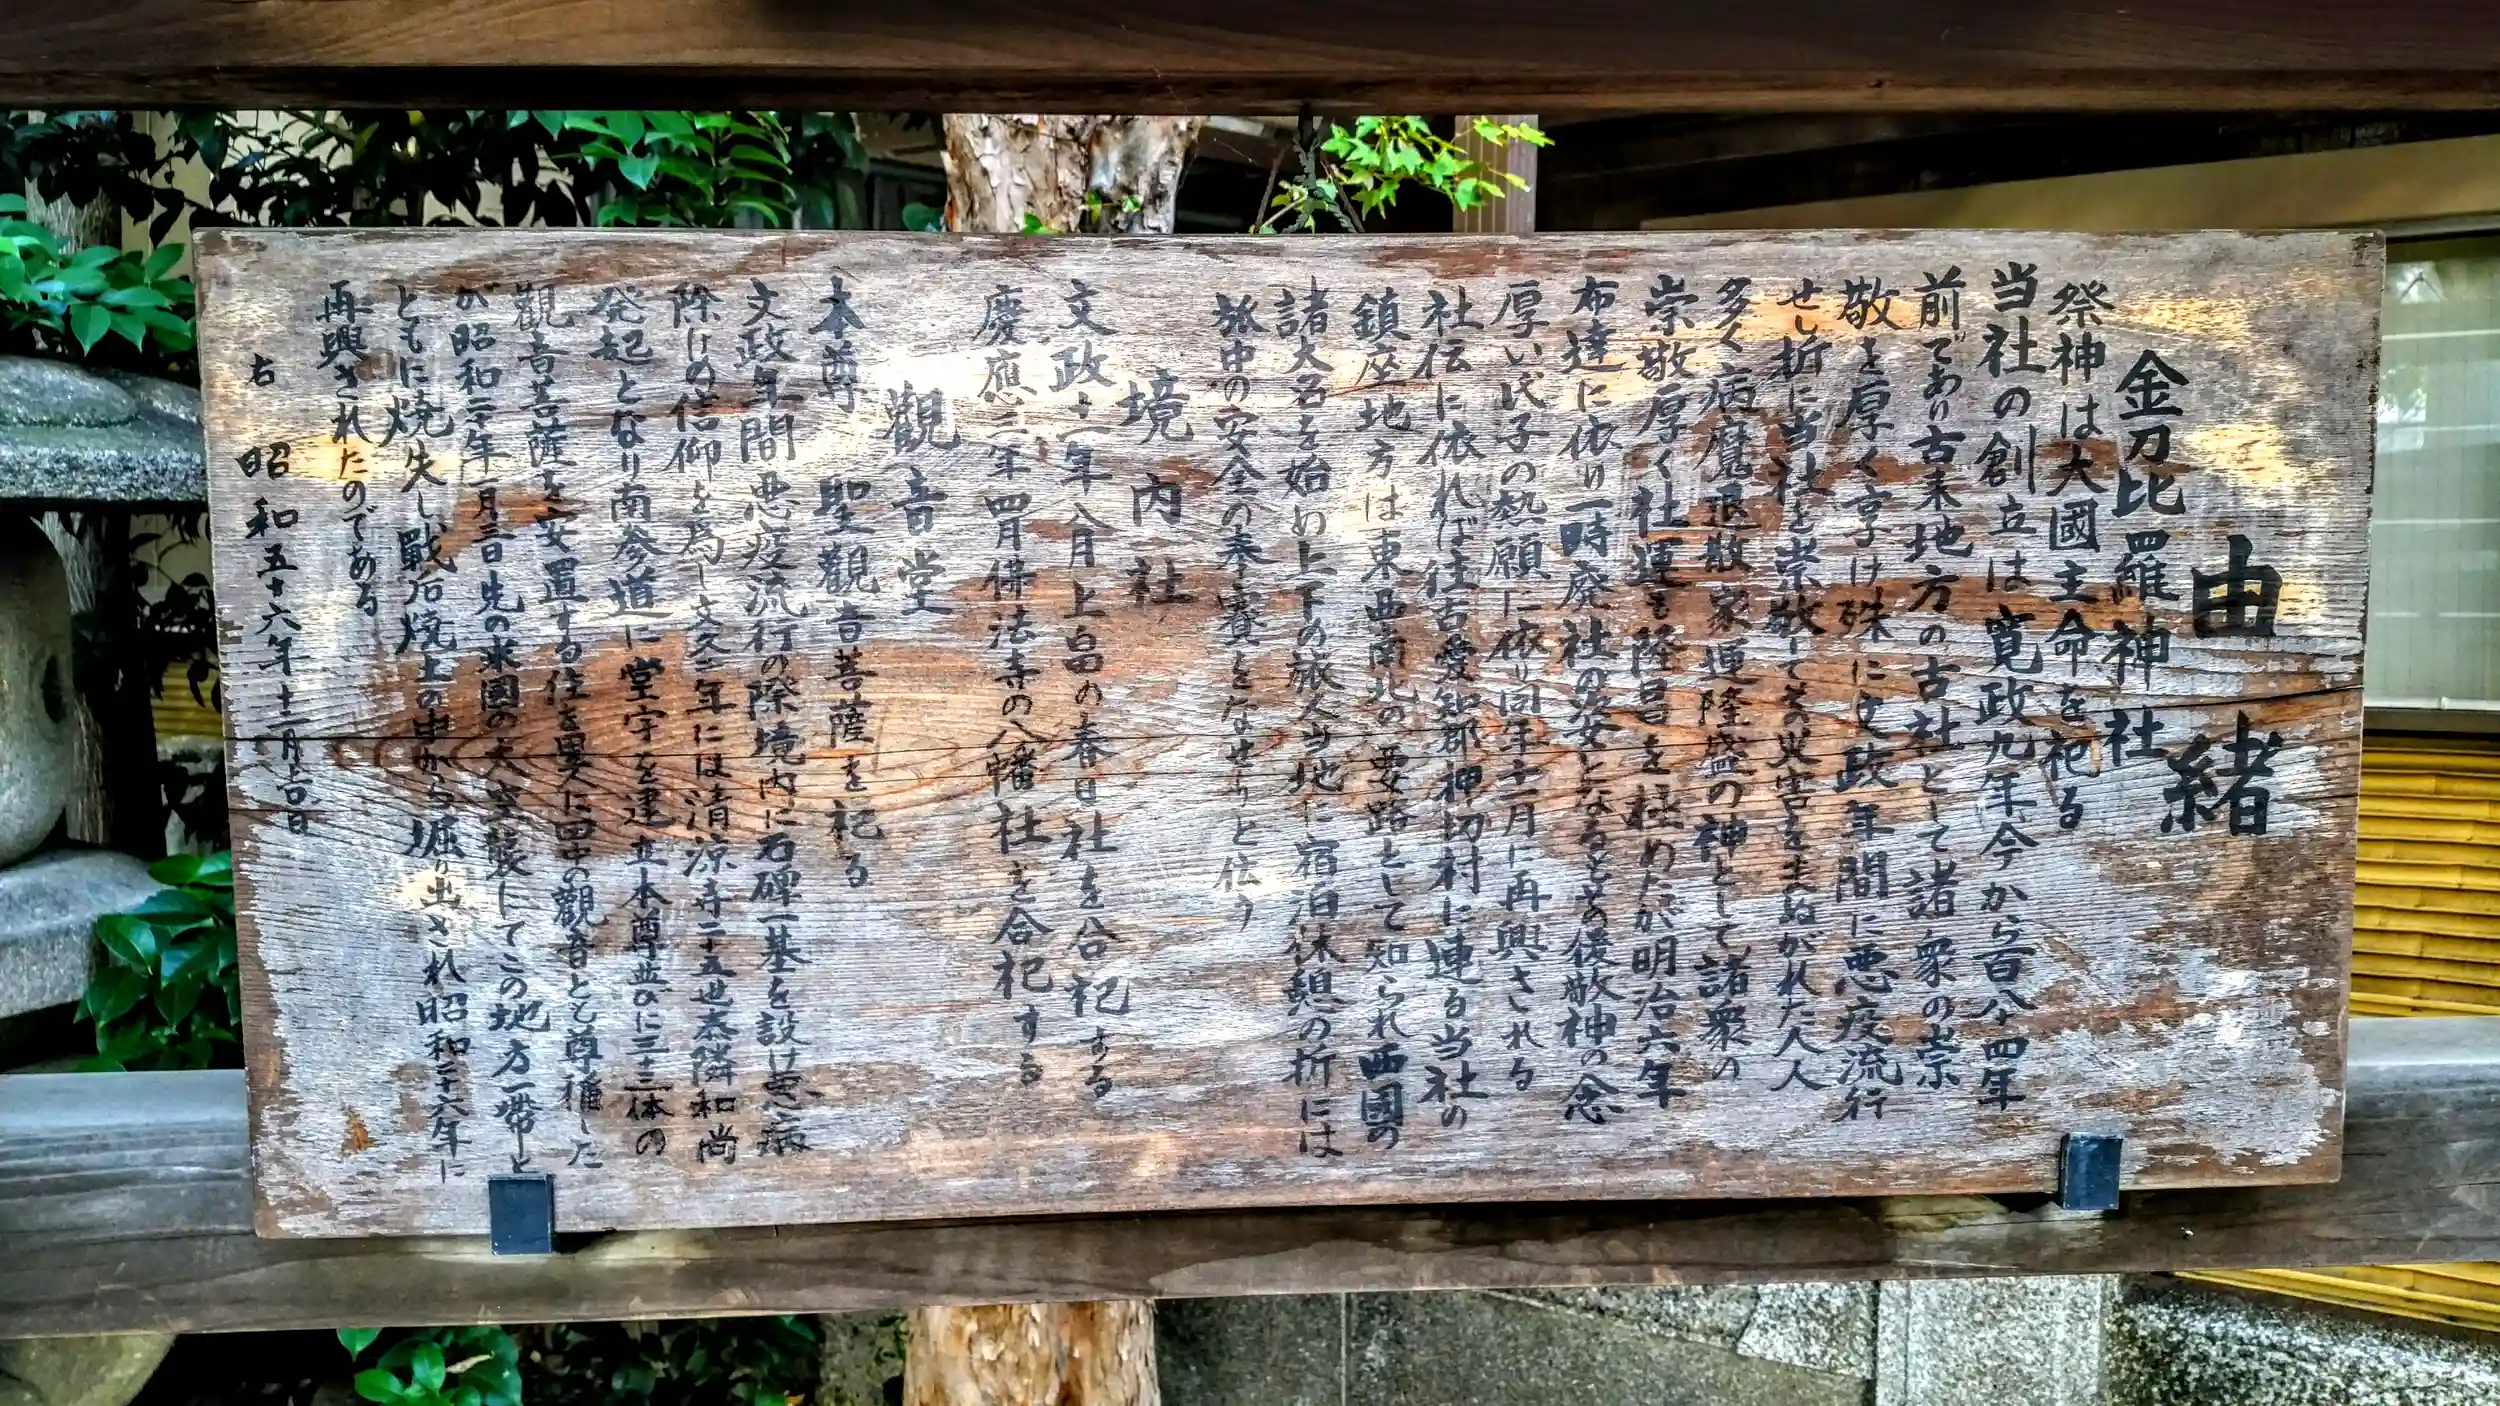 由緒
金刀比羅神社
祭神は大國主命を祀る
当社の創立は寛政九年今から百八十四年
前であり古来地方の古社として諸衆の崇
敬を厚く享け殊に文政年間に悪疫流行
せし折に当社を崇敬してその災害をまぬがれた人人
多く病魔退散家運隆盛の神として諸衆の
崇敬厚く社運も隆昌を極めたが明治六年
布達に依り一時廃社の男女となるとその後敬神の念
厚い氏子の熱願に依り同年十一月に再興される
社伝に依れば往古愛知郡神切村に連る当社の
鎮座地方は東西南北の要路として知られ西國の
諸大名を始め上下の旅人当地に宿泊休憩の折には
旅中の安全の奉賽をなせりと伝う
境内社
文政十一年八月上畠の春日社を合祀する
慶應三年四月佛法寺の八幡社を合祀する
觀音堂
本尊 聖觀音菩薩を祀る
文政年間悪疫流行の際境内に石碑一基を設け悪病
除けの信仰を為し文久二年には清凉寺二十五世泰隣和尚
発起となり南参道に堂宇を建立本尊並びに三十三体の
觀音菩薩を安置する位を異に田中の觀音とも尊称した
が昭和二十年一月三日先の米國の大空襲にてこの地方一帯と
ともに焼失し戰后焼土の中から堀り出され昭和二十六年に
再興されたのである
右 昭和五十六年十二月吉日